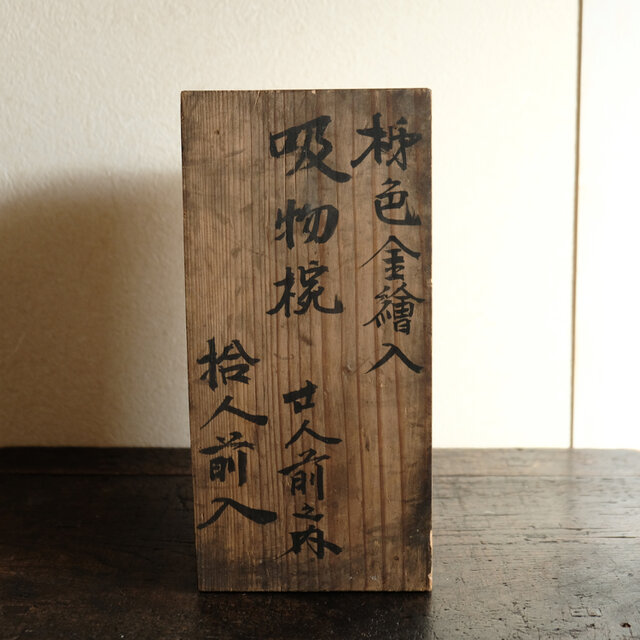 柹色金繪入
吸物椀
廿人前之内
拾人前入